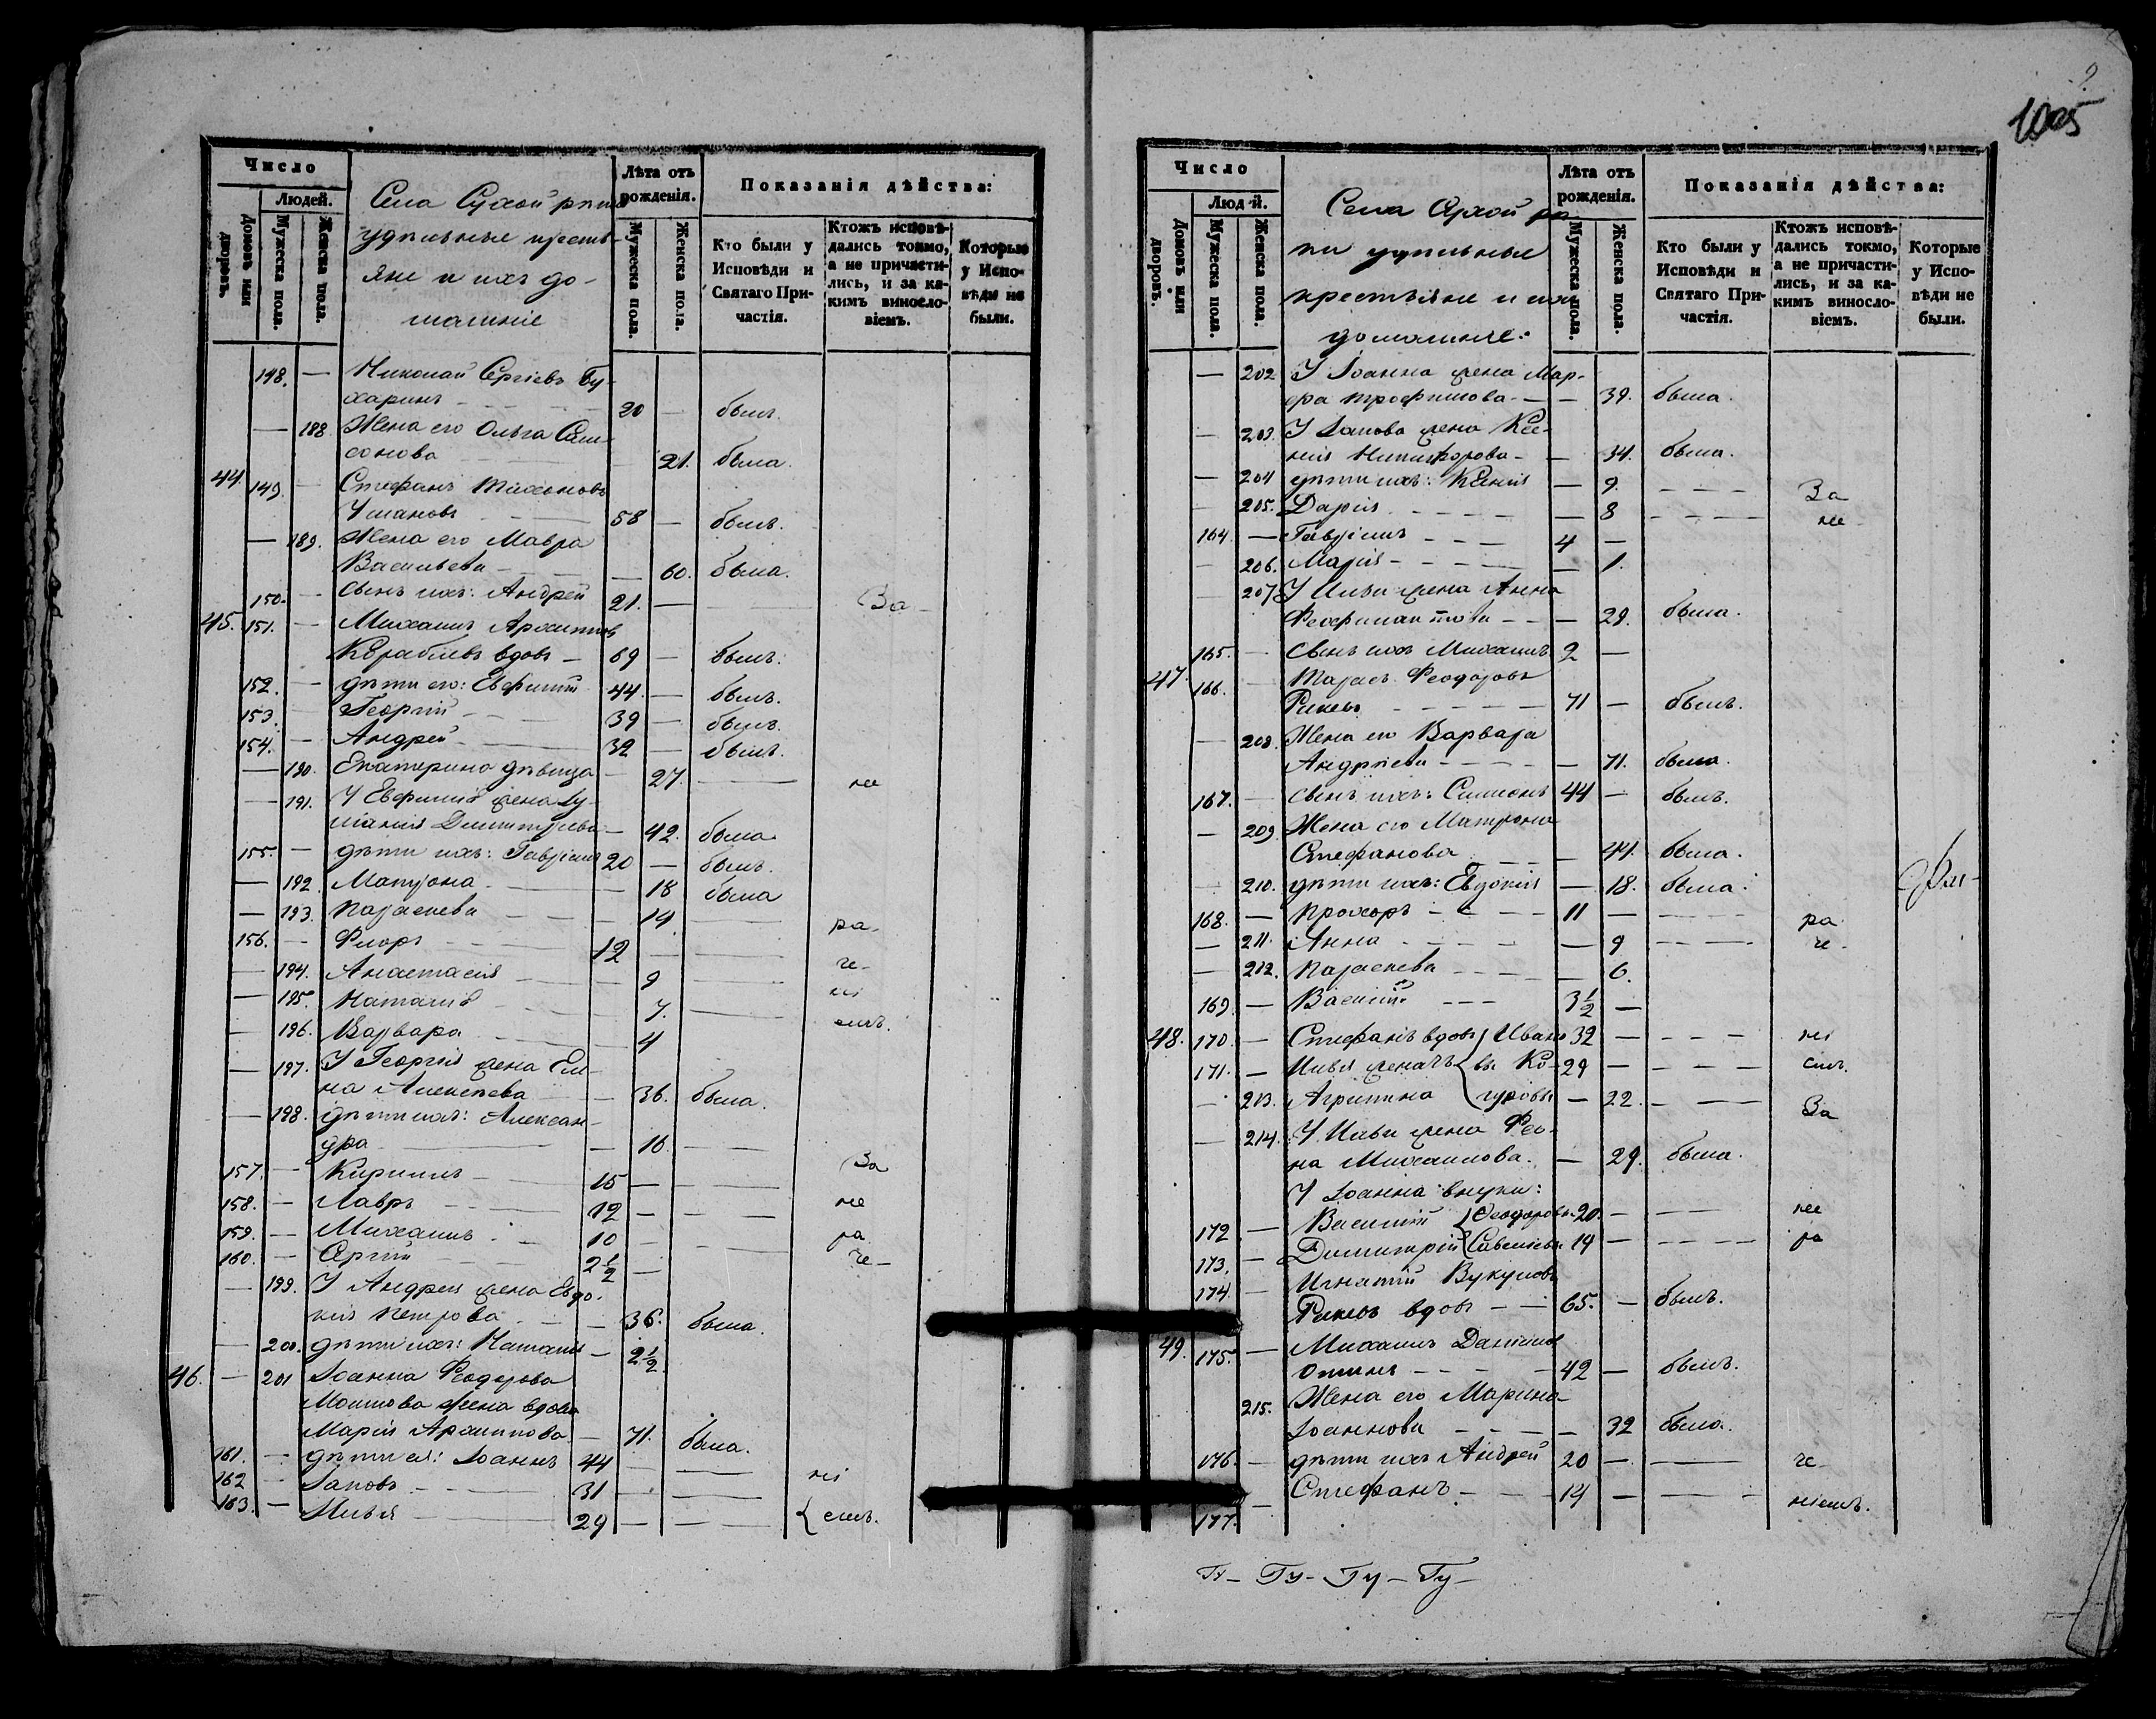 Число
Людей.
Домовъ или дворовъ.
Мужеска пола.
Женска пола.
Села Сухой рѣки
удѣльные кресть-
яне и ихъ до-
машніе
Лѣта отъ рожденія.
Мужеска пола.
Женска пола.
Показанія дѣйства:
Кто были у Исповѣди и Святаго При-частія.
Ктожъ исповѣ-дались токмо, а не причасти-лись, и за ка-кимъ винословіемъ.
Которые у Испо-вѣди не были.
148. — Николай Сергіевъ Бу-
харинъ 20 — былъ.
— 188. Жена его Ольга Сам-
сонова 21. была.
44 149. — Стефанъ Тихоновъ
Ушаковъ 58 — былъ.
— 189. Жена его Мавра
Васильева — 60. была.
150. — Сынъ ихъ: Андрей 21. — За-
45. 151. — Михаилъ Архиповъ
Кораблевъ вдовъ — 69 — былъ.
152. — дѣти его: Евфимій 44. — былъ.
153. Георгій 39 — былъ.
154. — Андрей 32 — былъ.
— 190. Екатерина дѣвица — 27. — не
— 191. У Евфимія жена Іу-
ліанія Димитріева — 42. была
155. — дѣти ихъ: Гавріилъ 20 — былъ.
— 192. Матрона — 18 была
— 193. Параскева — 14 ра-
156. — Флоръ 12 — че-
— 194. Анастасія — 9 ні
— 195. Наталія 7. емъ.
— 196. Варвара 4
— 197. У Георгія жена Еле-
на Алексѣева — 36. была.
— 198. дѣти ихъ: Алексан-
дра — 16. —
157. — Кириллъ 15 — За
158. — Лавръ 12 — не
159. — Михаилъ 10 — ра
160. — Сергій 2½ — че-
— 199. У Андрея жена Евдо-
кія Петрова — 36. была.
— 200. дѣти ихъ: Наталія — 2½
46. — 201 Іоанна Феодорова
жена вдова
Марія Архипова — 71. была.
161. — дѣти ея: Іоаннъ 44 — ні
162 — Іаковъ 31 —
163. — Илья 29 — емъ.
1005
Число
Людей.
Домовъ или дворовъ.
Мужеска пола.
Женска пола.
Села Сухой рѣ-
ки удѣльные
крестьяне и ихъ
домашніе.
Лѣта отъ рожденія.
Мужеска пола.
Женска пола.
Показанія дѣйства:
Кто были у Исповѣди и Святаго При-частія.
Ктожъ исповѣ-дались токмо, а не причасти-лись, и за ка-кимъ винословіемъ.
Которые у Испо-вѣди не были.
— 202 У Іоанна жена Мар-
фа Трофимова — — 39. была.
— 203. У Іакова жена Ксе-
нія Никифорова — — 34. была.
— 204 дѣти ихъ: Ксенія — 9. За
— 205. Дарія — 8 не
164. — Гавріилъ 4 —
— 206. Марія — 1.
— 207 У Ильи жена Анна
Феофилактова — — 29. была.
165. — Сынъ ихъ Михаилъ 2 —
47. 166. — Тарасъ Феодоровъ
71 — былъ.
— 208. Жена его Варвара
Андреева — 71. была.
167. — Сынъ ихъ: Симеонъ 44 — былъ.
— 209. Жена его Матрона
Стефанова — 44. была.
— 210. дѣти ихъ: Евдокія — 18. была.
168. — Прохоръ 11 — ра
— 211. Анна — 9 че-
— 212. Параскева — 6.
169. — Василій 3½ —
48. 170. — Стефанъ вдовъ 32 — ні
171. — Илья женатъ 29 — емъ.
— 213. Агрипина — 22. За
— 214. У Ильи жена Фео-
на Михаилова. — 29. была.
У Іоанна внуки:
172 — Василій Феодоровъ 20. — не
173. — Димитрій Савельевъ 14 — ра
174. — Игнатій Вукуловъ
вдовъ — 65. — былъ.
49. 175. — Михаилъ Даніиловъ
42 — былъ.
215. Жена его Марина
Іоаннова — 32 была.
176. — дѣти ихъ Андрей 20 — че-
177. — Стефанъ 14 — ніемъ.
Гу- Гу- Гу- Гу-